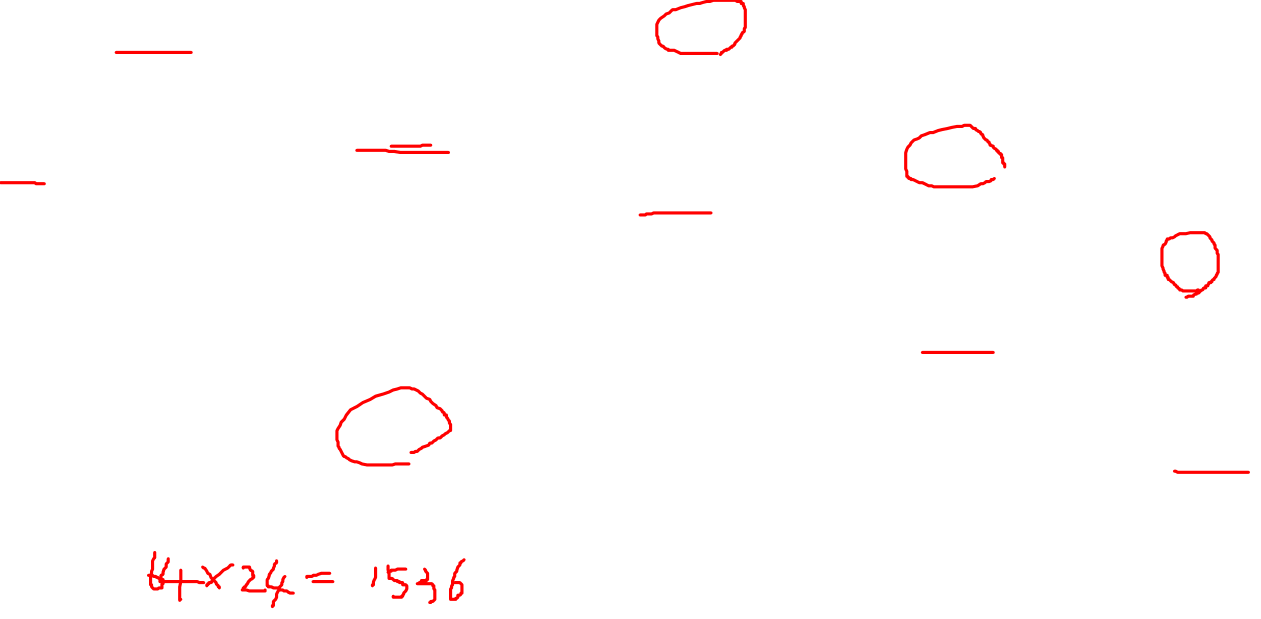 64×24 = 1536